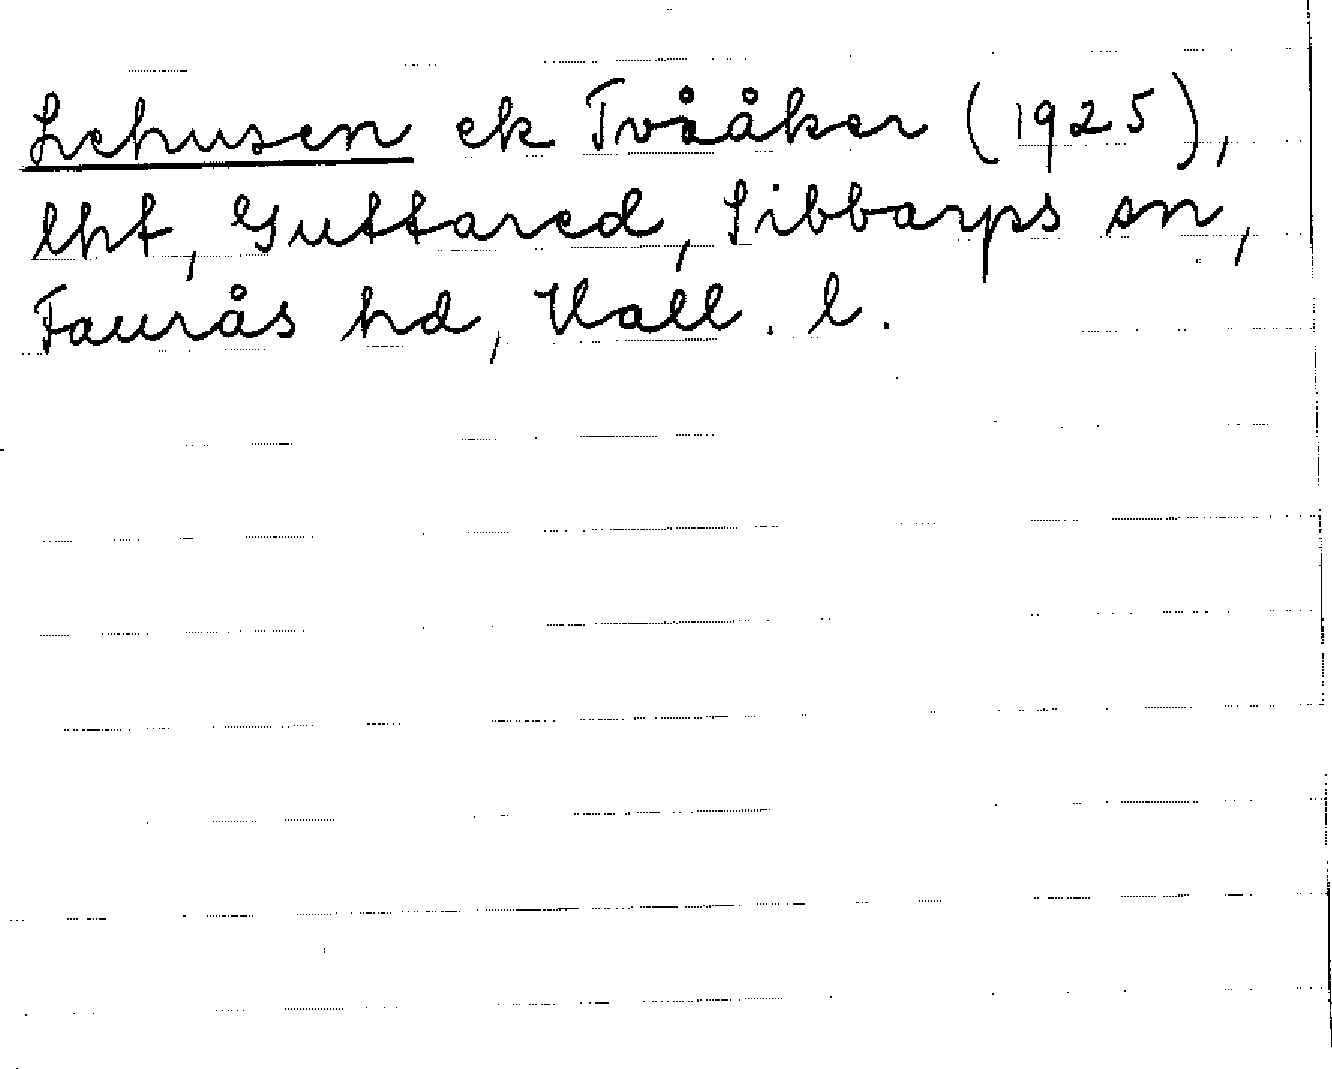 Lehusen ek Tvååker (1925),
lht, Guttared, Sibbarps sn,
Faurås hd, Hall. l.